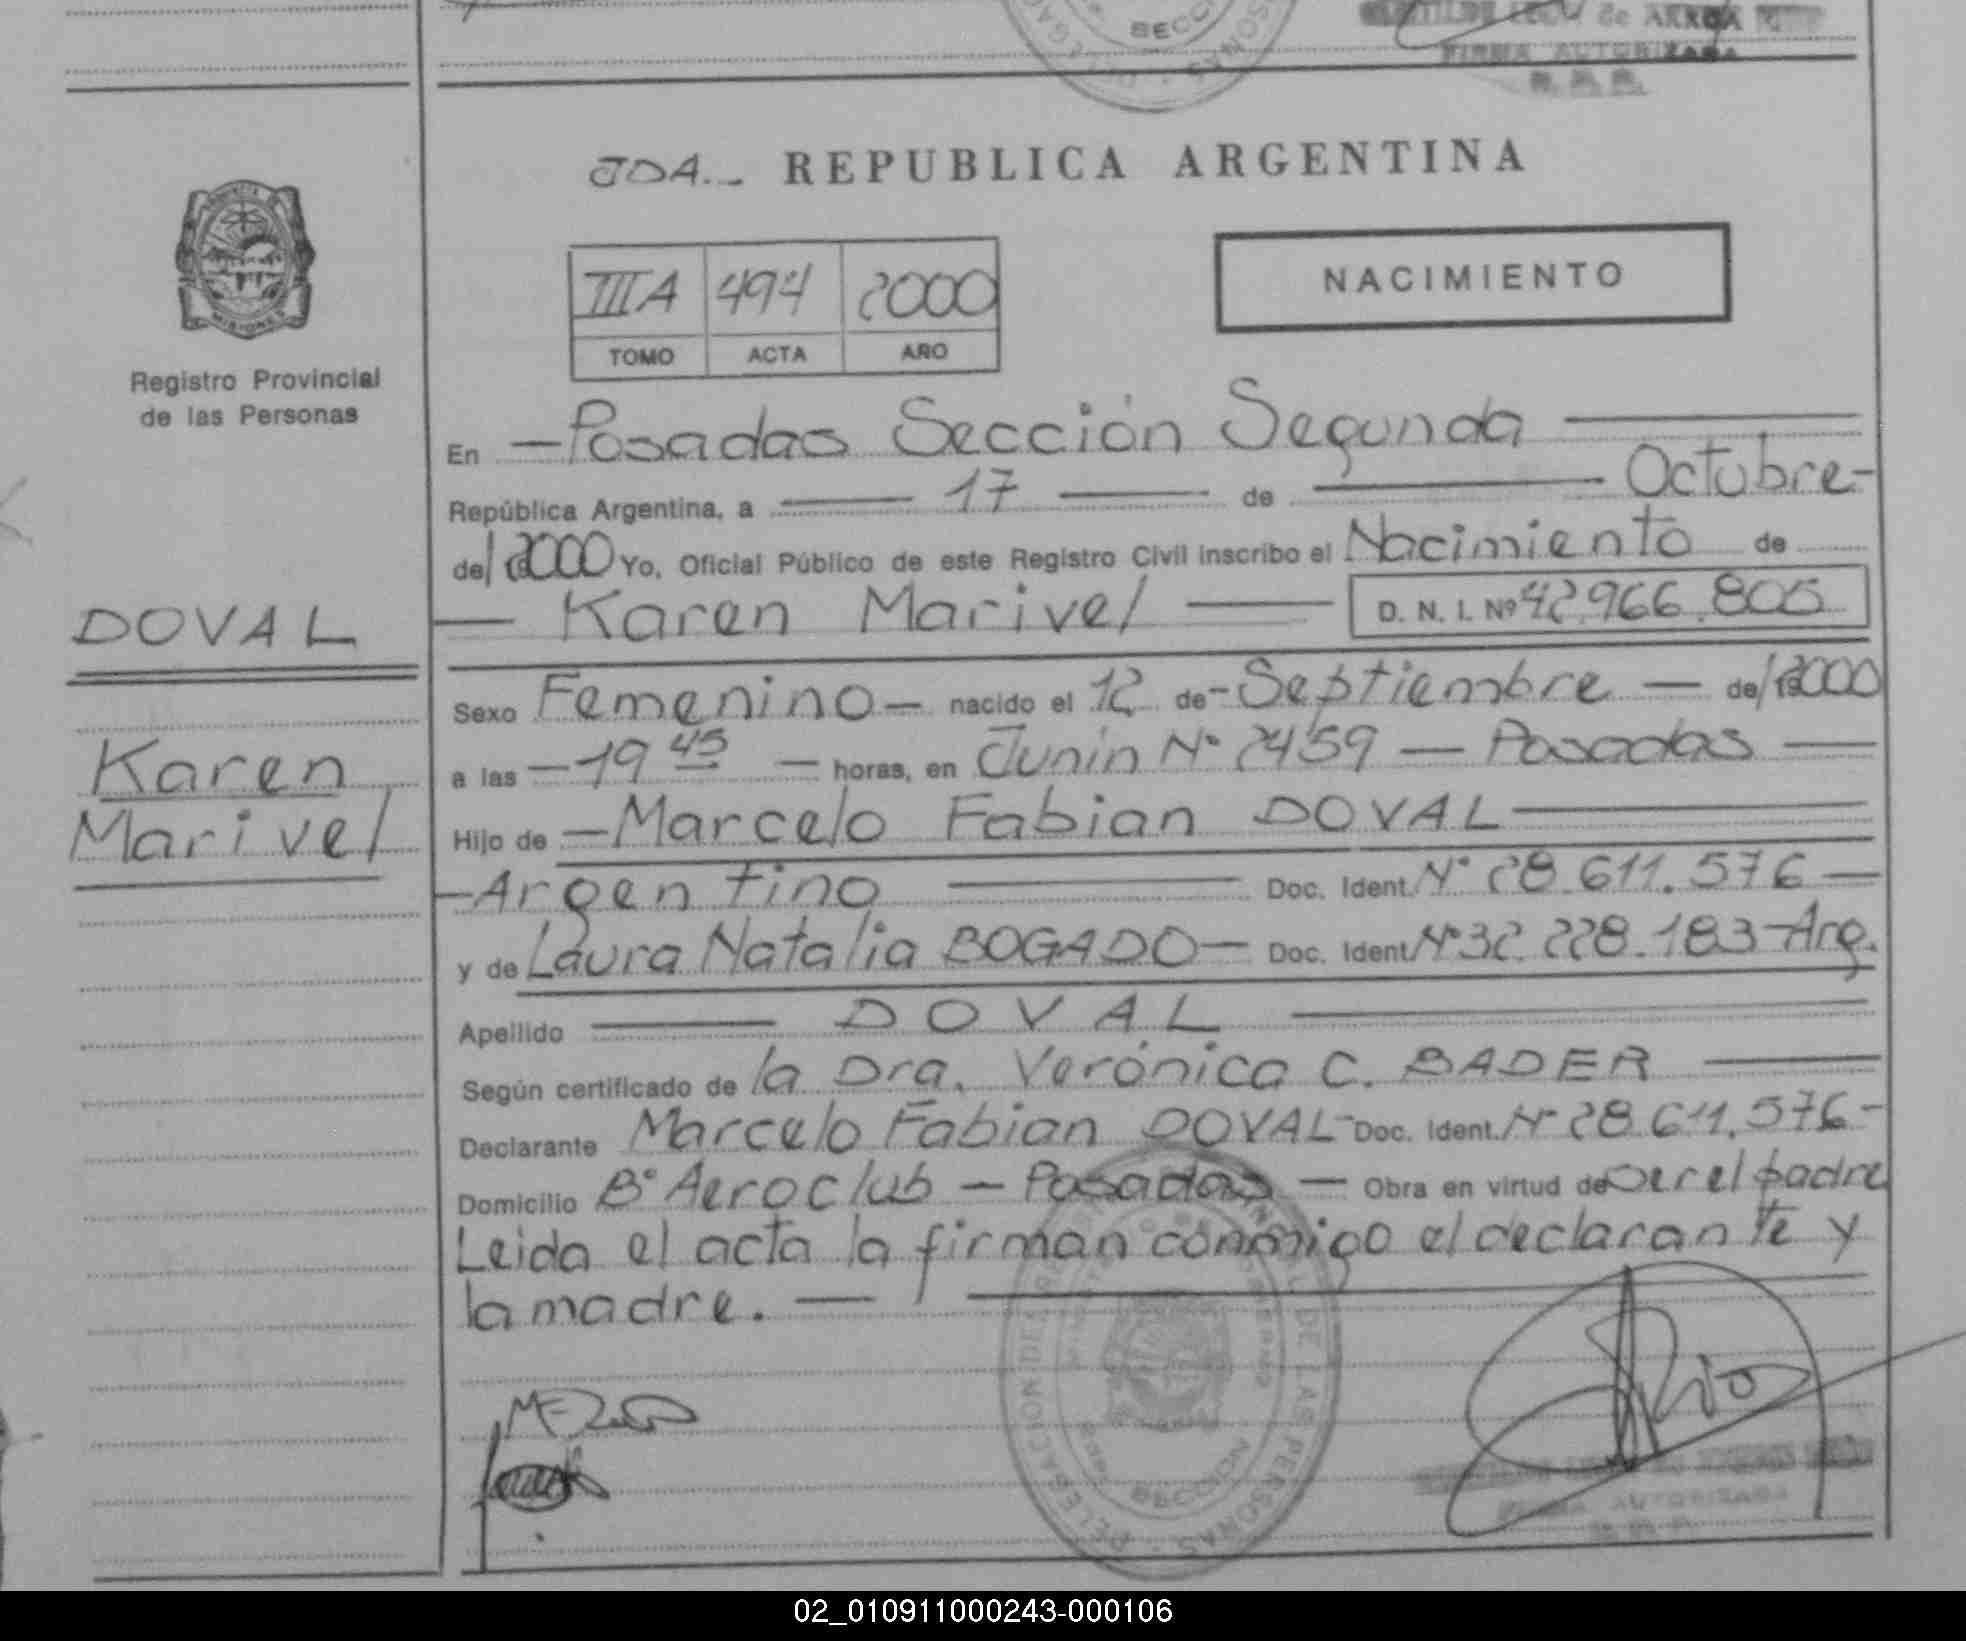 SECCI
de ARROA
FIRMA AUTORIZADA
JDA.- REPUBLICA ARGENTINA
MISIONES
Registro Provincial
de las Personas
NACIMIENTO
IIIA 494 2000
TOMO ACTA AÑO
En — Posadas Sección Segunda —
República Argentina, a — 17 — de — Octubre-
de/2000 Yo, Oficial Público de este Registro Civil inscribo el Nacimiento de
— Karen Marivel — D. N. I. Nº 42.966.805
DOVAL
Karen
Marivel
Sexo Femenino — nacido el 12 de - Septiembre — de/2000
a las — 19 45 — horas, en Junín Nº 2459 — Posadas —
Hijo de — Marcelo Fabian DOVAL —
— Argentino — Doc. Ident. Nº 28.611.576 —
y de Laura Natalia BOGADO — Doc. Ident. Nº 32.228.183 - Arg.
Apellido — DOVAL —
Según certificado de la Dra. Verónica C. BADER —
Declarante Marcelo Fabian DOVAL - Doc. Ident. Nº 28.611.576 -
Domicilio Bº Aeroclub — Posadas — Obra en virtud de ser el padre
Leida el acta la firman conmigo el declarante y
la madre. —
DE LAS PERSONAS
SECCION
AUTORIZADA
02_010911000243-000106